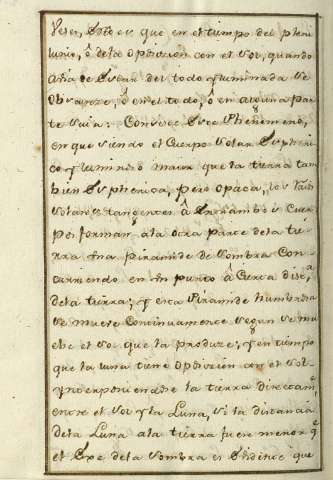 Veses, Esto es que en el tiempo del pleni
lunio, ô dela Oposicion con el Sol, quando
avia de Estar del todo Yluminada se
Obscurece, ô en el todo, ô en alguna par
te suia: Consiste este Phenomeno,
en que siendo el Cuerpo Solar Espheri
co, Yluminoso maior que la tierra tam
bien Espherica, pero Opaca, los raios
Solares tangentes â Entrambos Cuer
pos forman, ala otra parte dela tie
rra Una Piramide de Sombra Con
curriendo en Un punto â Cierta dist.ª
dela tierra; y esta Piramide Umbrosa
se mueve Continuamente segun se mu
ebe el Sol que la produze, y en tiempo
que la luna tiene Oposicion con el Sol
Ynterponiendose la tierra directam.te
entre el Sol y la Luna, si la distancia
dela Luna ala tierra fuere menor q.e
el Exe dela Sombra es Evidente que